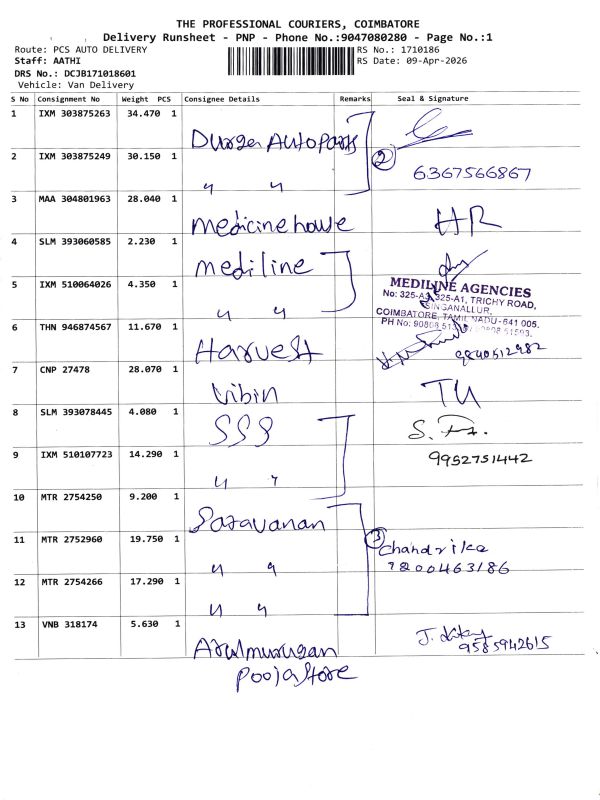 THE PROFESSIONAL COURIERS, COIMBATORE
Delivery Runsheet - PNP - Phone No.:9047080280 - Page No.:1
Route: PCS AUTO DELIVERY RS No.: 1710186
Staff: AATHI RS Date: 09-Apr-2026
DRS No.: DCJB171018601
Vehicle: Van Delivery
S No Consignment No Weight PCS Consignee Details Remarks Seal & Signature
1 IXM 303875263 34.470 1
Durga Autoparts
2 IXM 303875249 30.150 1 2
6367566867
" "
3 MAA 304801963 28.040 1
medicine house HR
4 SLM 393060585 2.230 1
mediline
5 IXM 510064026 4.350 1 MEDILINE AGENCIES
No: 325-A3, 325-A1, TRICHY ROAD,
SINGANALLUR,
COIMBATORE, TAMIL NADU-641 005.
" "
PH No: 90808
6 THN 946874567 11.670 1
Harvest 9840512982
7 CNP 27478 28.070 1
Vibin TU
8 SLM 393078445 4.080 1
SSS
9 IXM 510107723 14.290 1 9952751442
" "
10 MTR 2754250 9.200 1
Saravanan
11 MTR 2752960 19.750 1 3
Chandrika
7200463186
" "
12 MTR 2754266 17.290 1
" "
13 VNB 318174 5.630 1
Arulmurugan 9585942615
Pooja Store